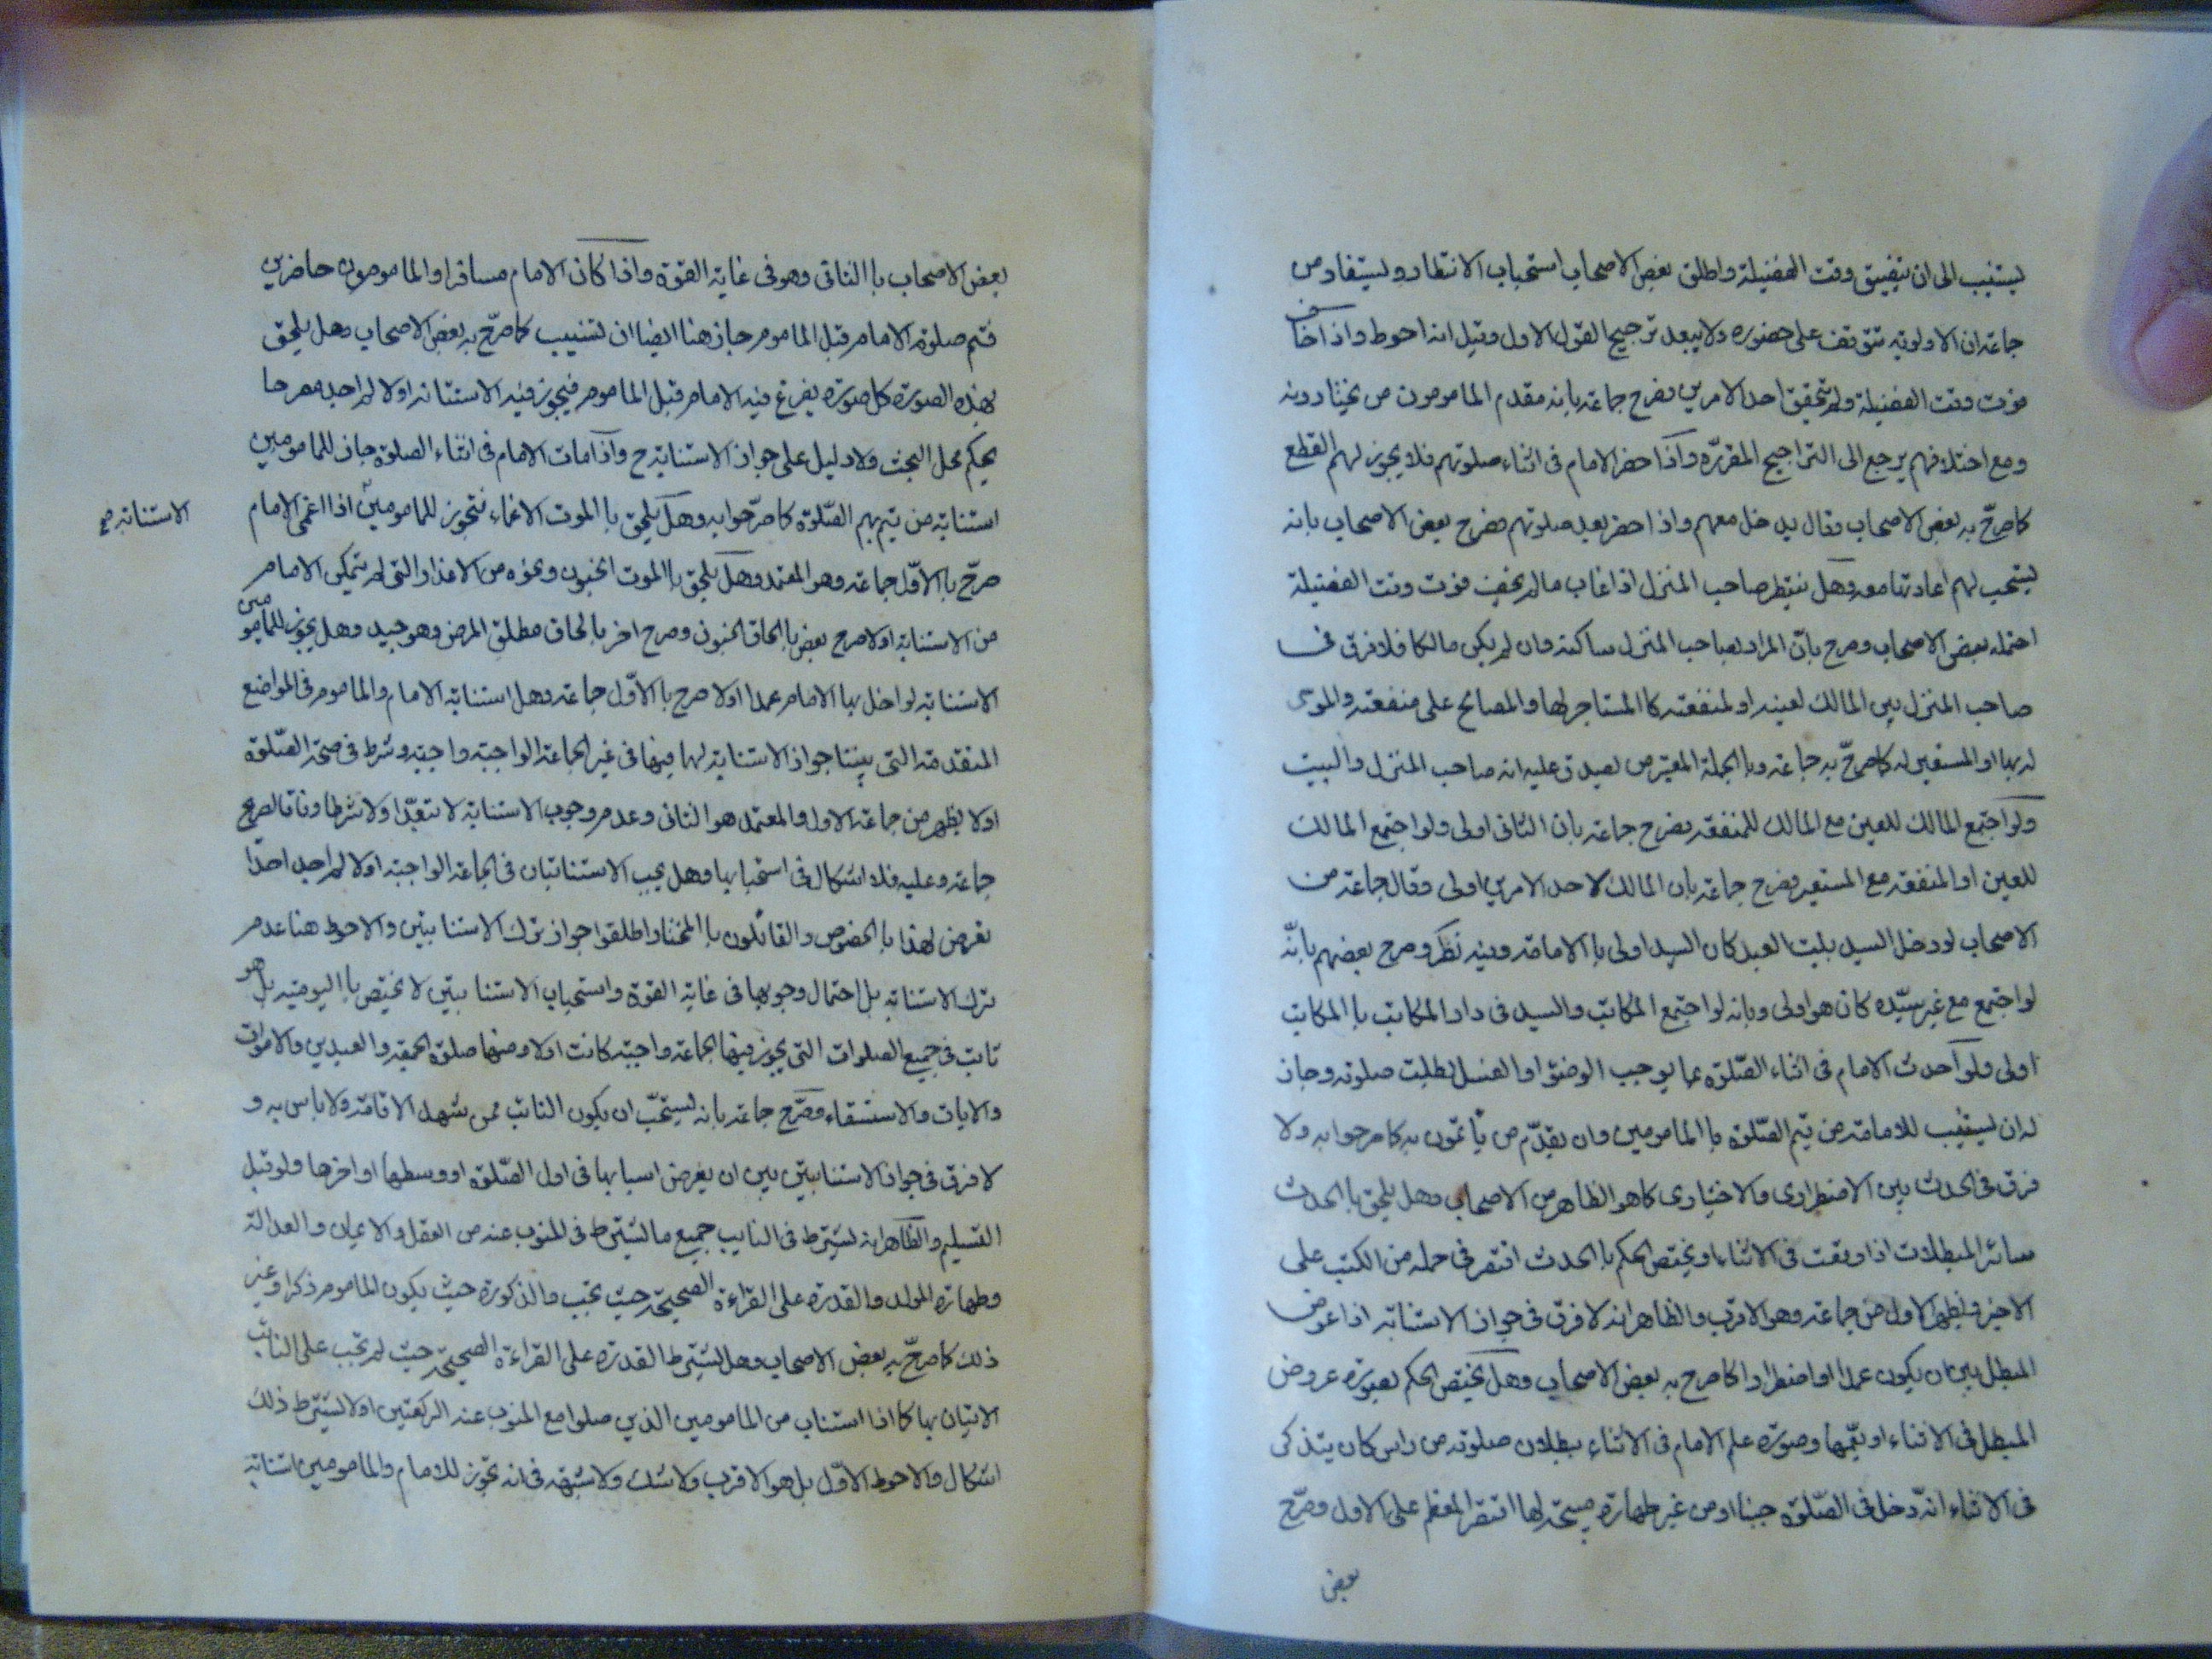 ليستنيب الى ان يتضيق وقت الفضيلة واطلق بعض الاصحاب استحباب الانتظار وليستفاد من
جماعة ان الاولوية تتوقف على حضوره ولا يبعد ترجيح القول الاول وقيل انه احوط واذا خاف
فوت وقت الفضيلة ولم يتحقق احد الامرين فصرح جماعة بانه مقدم المامومون من يختارونه
ومع اختلافهم يرجع الى التراجيح المقررة واذا حضر الامام فى اثناء صلوتهم فلا يجوز لهم القطع
كما صرّح به بعض الاصحاب وقال يدخل معهم واذا حضر بعد صلوتهم فصرح بعض الاصحاب بانه
يستحب لهم اعادتها معه وهل ينتظر صاحب المنزل اذا غاب ما لم يخف فوت وقت الفضيلة
احتمله بعض الاصحاب وصرح بانّ المراد بصاحب المنزل ساكنه وان لم يكن مالكا فلا فرق فى
صاحب المنزل بين المالك لعينه او لمنفعته كا المستاجر لها والمصالح على منفعته والموصى
له بها او المستعير له كما صرّح به جماعة وبا الجملة المعتبر من يصدق عليه انه صاحب المنزل والبيت
ولو اجتمع المالك للعين مع المالك للمنفعة فصرح جماعة بان الثانى اولى ولو اجتمع المالك
للعين او المنفعة مع المستعير فصرح جماعة بان المالك لاحد الامرين اولى وقال جماعة من
الاصحاب لو دخل السيد بيت العبد كان السيد اولى با الامامة وفيه نظر وصرح بعضهم بانّه
لو اجتمع مع غير سيّده كان هو اولى وبانه لو اجتمع المكاتب والسيد فى دار المكاتب با المكاتب
اولى ولو احدث الامام فى اثناء الصّلوة بما يوجب الوضوء او الغسل بطلت صلوته وجاز
له ان ليستنيب للامامة من يتم الصّلوة با المامومين وان يقدّم من يأتمّون به كما صرحوا به ولا
فرق فى الحدث بين الاضطرارى والاختيارى كما هو الظاهر من الاصحاب وهل يلحق با الحدث
سائر المبطلات اذا وقعت فى الاثناء او يختص الحكم با الحدث اقتصر فى جملة من الكتب على
الاخير ويظهر الاول من جماعة وهو الاقرب والظاهر انه لا فرق فى جواز الاستنابة اذا عرض
المبطل بين ان يكون عمدا او اضطرارا كما صرح به بعض الاصحاب وهل يختص الحكم بصورة عروض
المبطل فى الاثناء او يعمّها وصورة علم الامام فى الاثناء ببطلان صلوته من راس كان يتذكر
فى الاثناء انه دخل فى الصّلوة جنبا او من غير طهارة مبيحة لها اقتصر المعظم على الاول وصرّح
بعض
بعض الاصحاب با الثانى وهو فى غاية القوة واذا كان الامام مسافرا والمامومون حاضرين
فتم صلوة الامام قبل الماموم جاز هنا ايضا ان ليستنيب كما صرّح به بعض الاصحاب وهل يلحق
بهذه الصورة كل صورة يفرغ فيه الامام قبل الماموم فيجوز فيه الاستنابة اولا لم اجد مصرحا
بحكم محل البحث ولا دليل على جواز الاستنابة ح واذا مات الامام فى اثناء الصلوة جاز للمامومين
استنابة من يتم بهم الصّلوة كما صرّحوا به وهل يلحق با الموت الاغماء فتجوز للمامومين اذا اغمى الامام
الاستنابة صح
صرّح با الاوّل جماعة وهو المعتمد وهل يلحق با الموت الجنون ونحوه من الاعذار التى لم يتمكن الامام
من الاستنابة اولا صرح بعض با الحاق الجنون وصرح اخر با لحاق مطلق المرض وهو جيد وهل يجوز للمامومين
الاستنابة لو اخل بها الامام عمدا اولا صرح با الاوّل جماعة وهل استنابة الامام والماموم فى المواضع
المتقدمة التى بيّنا جواز الاستنابة لهما فيها فى غير الجماعة الواجبة واجبة وشرط فى صحة الصّلوة
اولا يظهر من جماعة الاول والمعتمد هو الثانى وعدم وجوب الاستنابة لا تعبّدا ولا شرطا وفاقا لصريح
جماعة وعليه فلا اشكال فى استحبابها وهل يجب الاستنابتان فى الجماعة الواجبة اولا لم اجد احدا
تعرض لهذا با الخصوص والقائلون با المختار اطلقوا جواز ترك الاستنابتين والاحوط هنا عدم
ترك الاستنابة بل احتمال وجوبها فى غاية القوة واستحباب الاستنابتين لا يختص با اليومية بل هو
ثابت فى جميع الصلوات التى يجوز فيها الجماعة واجبة كانت اولا ومنها صلوة الجمعة والعيدين والاموات
والايات والاستسقاء وصرّح جماعة بانه ليستحبّ ان يكون النائب ممن شهد الاقامة ولا باس به و
لا فرق فى جواز الاستنابتين بين ان يعرض اسبابها فى اول الصّلوة او وسطها او اخرها ولو قبل
التسليم والظاهر انه ليشترط فى النايب جميع ما ليشترط فى المنوب عنه من العقل والايمان والعدالة
وطهارة المولد والقدرة على القراءة الصحيحة حيث تجب والذكورة حيث يكون الماموم ذكرا وغير
ذلك كما صرّح به بعض الاصحاب وهل ليشترط القدرة على القراءة الصحيحة حيث لم تجب على النائب
الاتيان بها كما اذا استناب من المامومين الذين صلوا مع المنوب عنه الركعتين اولا ليشترط ذلك
اشكال والاحوط الاوّل بل هو الاقرب ولا شك ولا شبهة فى انه تجوز للامام والمامومين استنابة